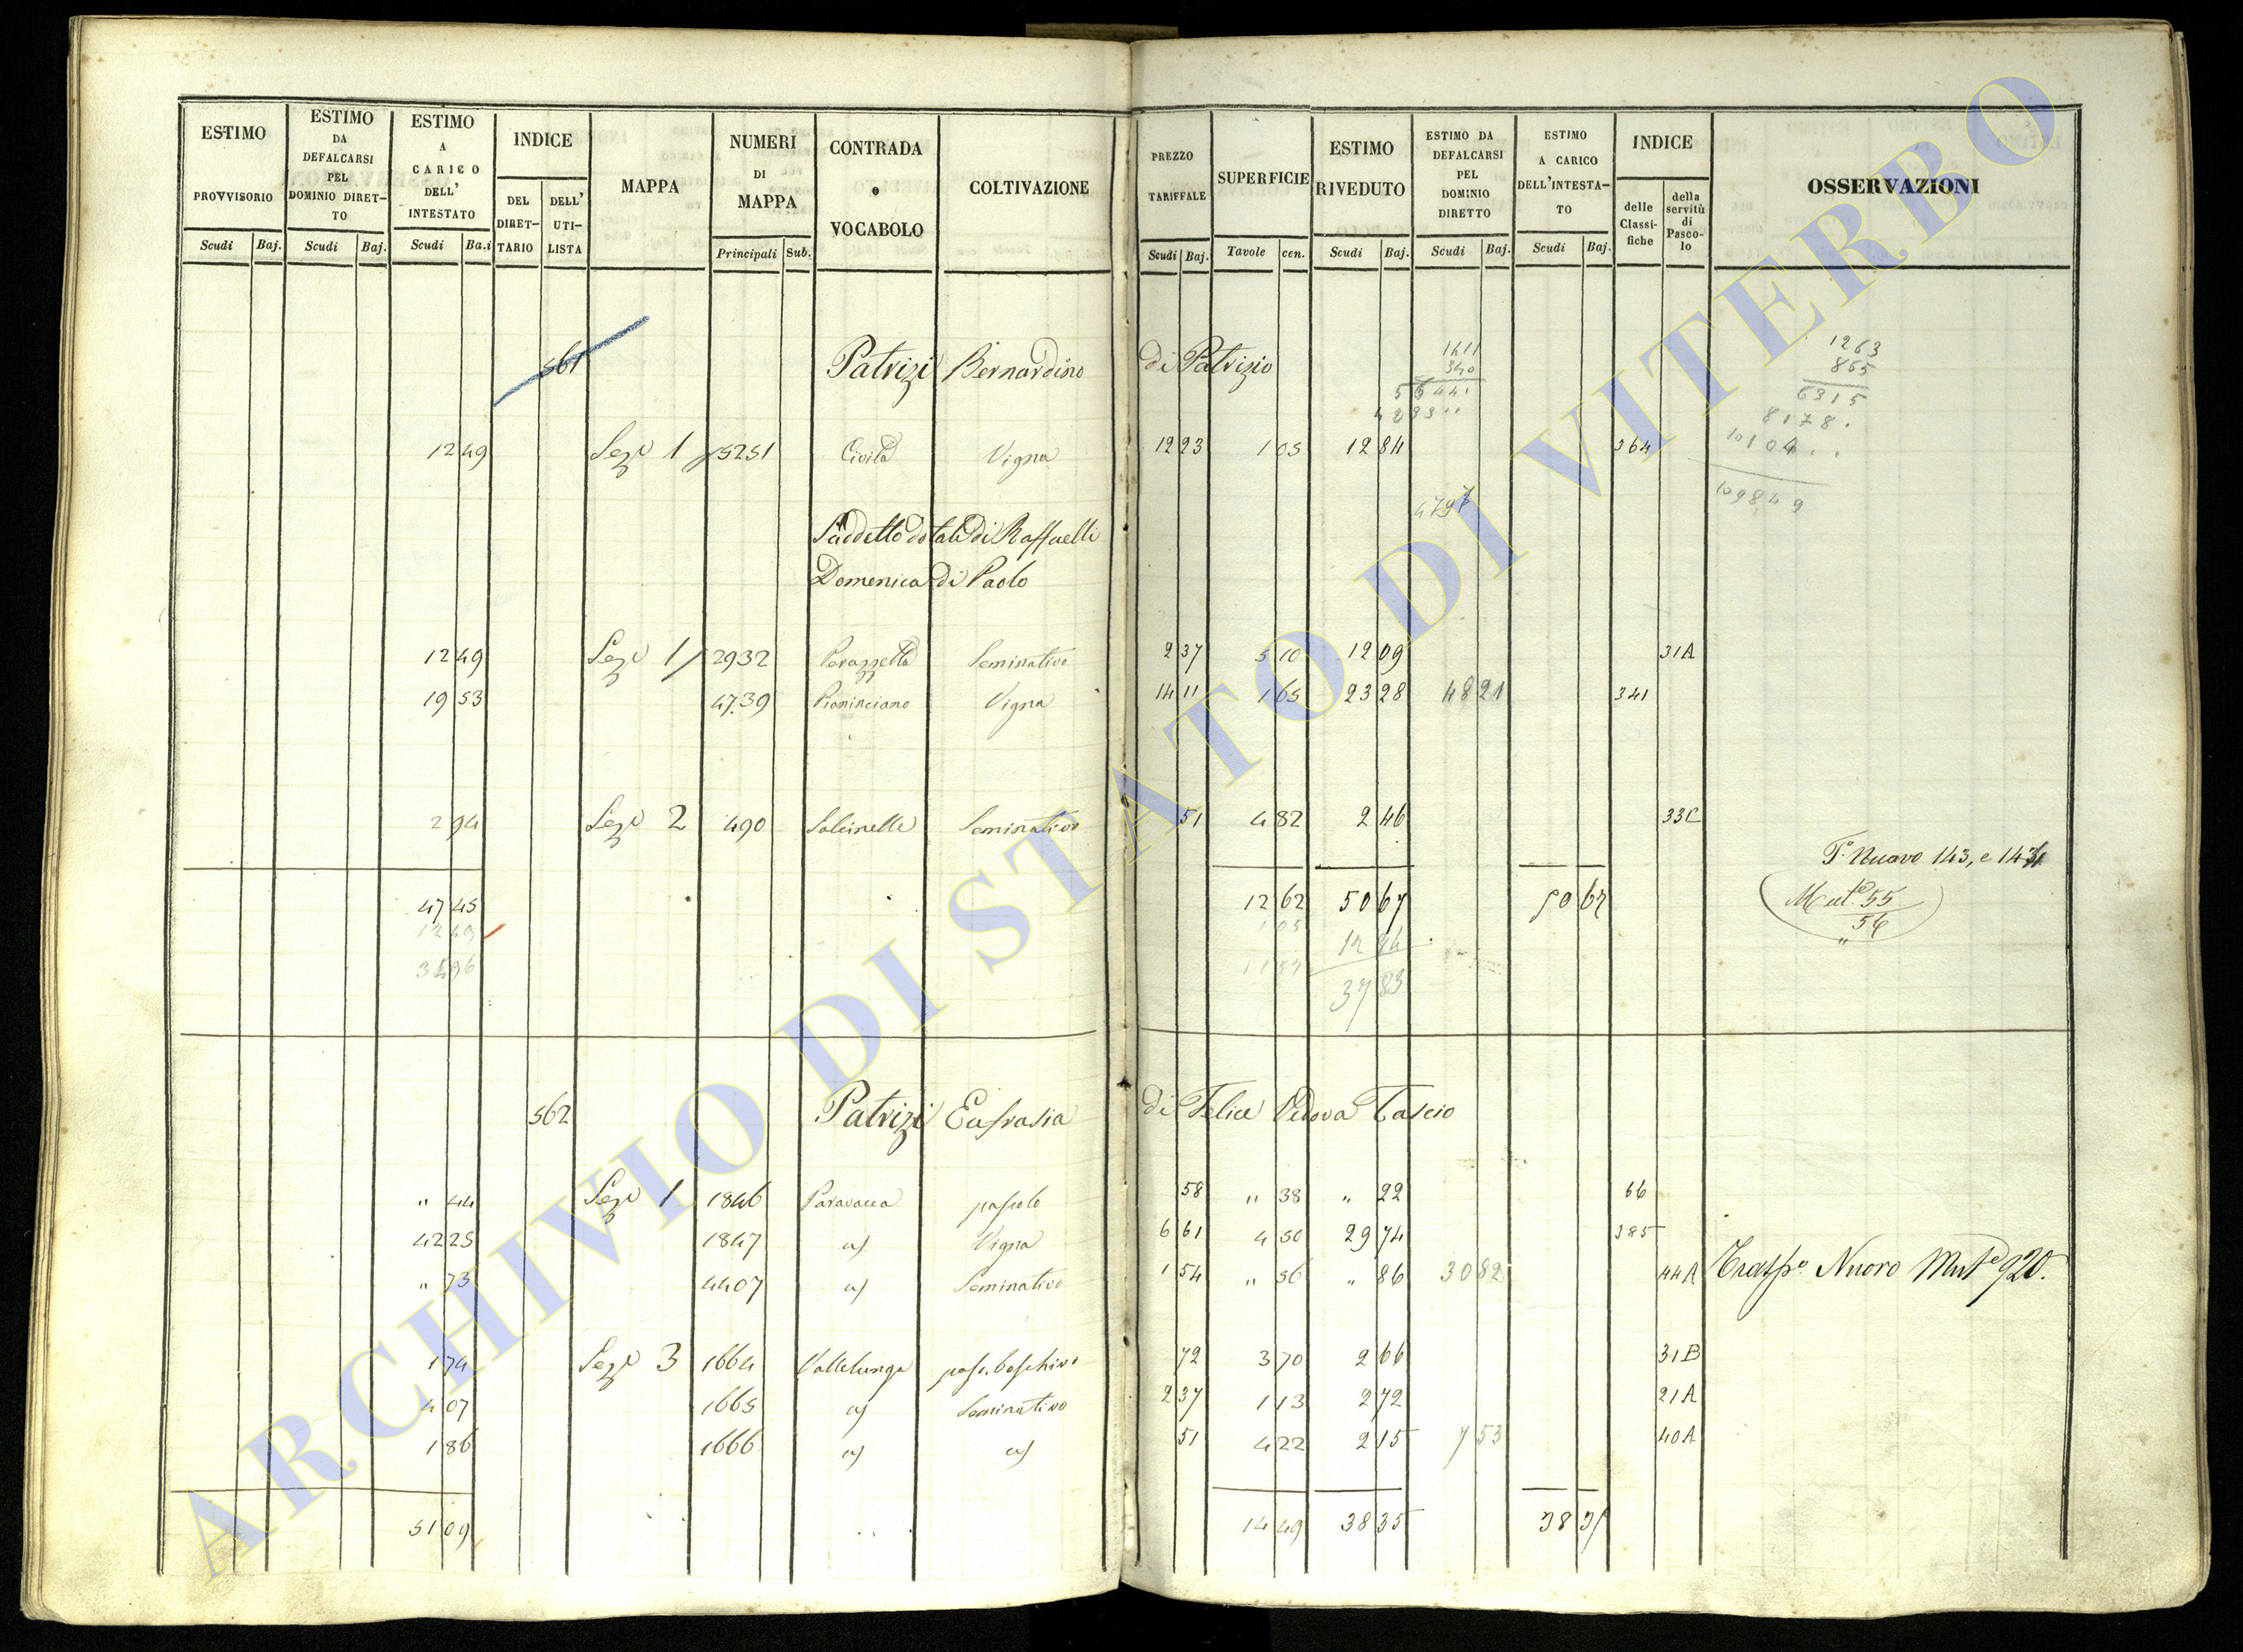 ESTIMO PROVVISORIO Scudi Baj.
ESTIMO DA DEFALCARSI PEL DOMINIO DIRETTO Scudi Baj.
ESTIMO A CARICO DELL' INTESTATO Scudi Ba.i
INDICE DEL DIRETTARIO DELL' UTILISTA
MAPPA
NUMERI DI MAPPA Principali Sub.
CONTRADA e VOCABOLO
COLTIVAZIONE
PREZZO TARIFFALE Scudi Baj.
SUPERFICIE Tavole cen.
ESTIMO RIVEDUTO Scudi Baj.
ESTIMO DA DEFALCARSI PEL DOMINIO DIRETTO Scudi Baj.
ESTIMO A CARICO DELL'INTESTATO Scudi Baj.
INDICE delle Classifiche della servitù di Pascolo
OSSERVAZIONI
561 Patrizi Bernardino di Patrizio
1411
340
5644.
4233..
1263
865
6315
8178.
10104..
109849
12 49 Sez.e 1 5251 Civita Vigna 12 23 1 05 12 84 364
4797
Suddetto dotali di Raffaelli
Domenica di Paolo
12 49 Sez.e 1 2932 Perazzetta Seminativo 2 37 5 10 12 09 31A
19 53 4739 Pianinciano Vigna 14 11 1 65 23 28 48 21 341
2 94 Sez.e 2 490 Salcinelle Seminativo 51 4 82 2 46 33C
T. Nuovo 143, e 1431
47 45 12 62 50 67 50 67 Mut.e 55
12 49 1 05 12 84 " 56
34 96 11 57 37 83
562 Patrizi Eufrasia di Felice Vedova Cascio
" 44 Sez.e 1 1846 Paravacca pascolo 58 " 38 " 22 66
42 25 1847 a) Vigna 6 61 4 50 29 74 385
" 73 4407 a) Seminativo 1 54 " 56 " 86 30 82 44A Trasp.o Nuovo Mut.e 920.
1 74 Sez.e 3 1664 Vallelunga pasc. boschivo 72 3 70 2 66 31B
4 07 1665 a) Seminativo 2 37 1 13 2 72 21A
1 86 1666 a) a) 51 4 22 2 15 7 53 40A
51 09 14 49 38 35 38 35
ARCHIVIO DI STATO DI VITERBO